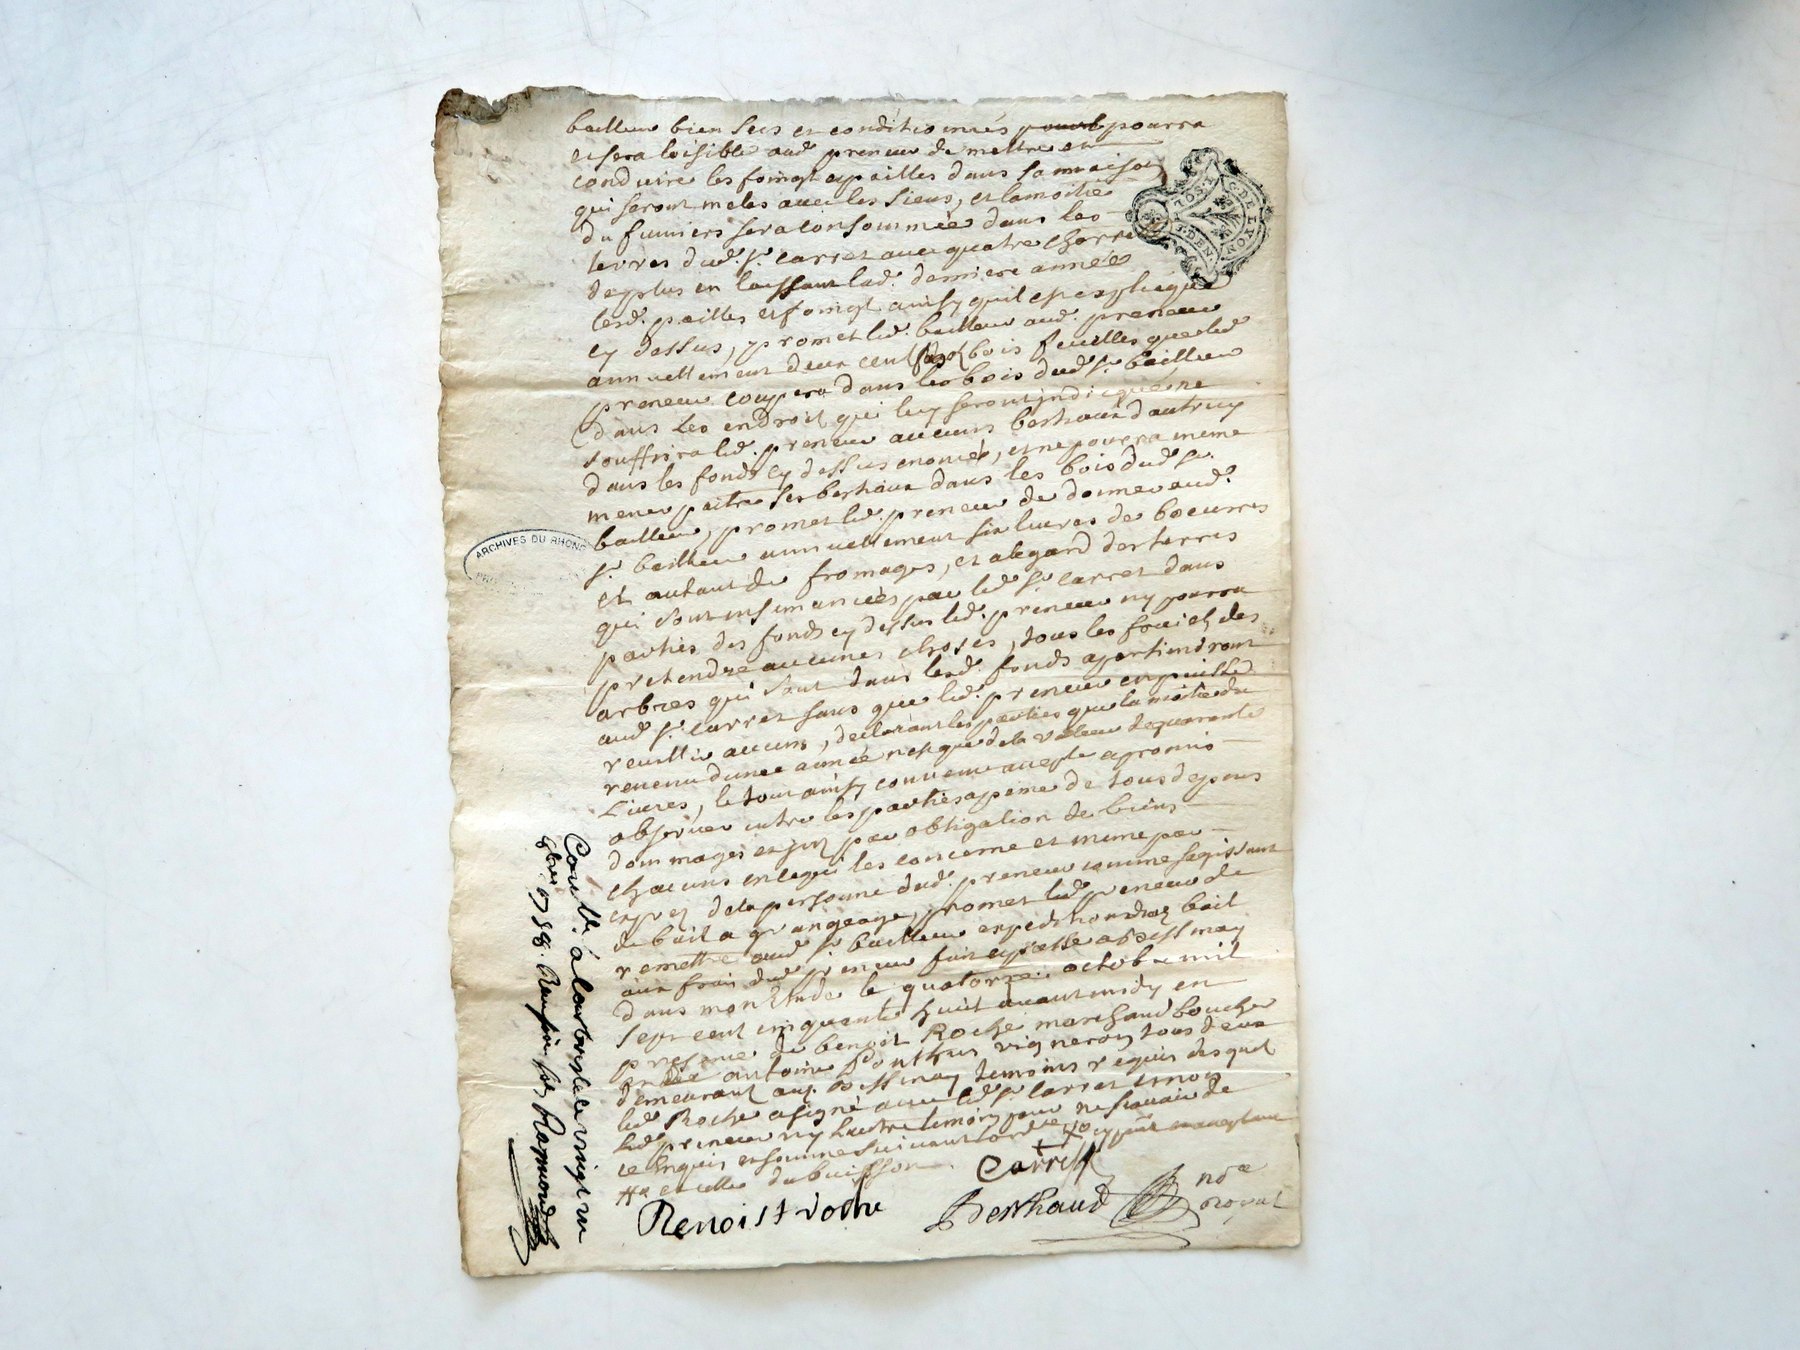 bailleur bien secs et conditionnés pourra
et sera loisible aud. preneur de mettre et
conduire les foingt et pailles dans sa maison
qui seront meles avec les siens, et la moitié
du fumiers sera consommée dans les
terres dud. sr. carret avec quatre
de plus en laissant lad. derniere année
lesd. pailles et foingt ainsy quil est expliqué
cy dessus, promet led. bailleur aud. preneur
annuellement deux cent bois feuilles que led.
preneur coupera dans les bois dud. sr. bailleur
dans les endroit qui luy seront indiqué, ne
souffrira led. preneur aucuns bestiaux dautruy
dans les fonds cy dessus enoncé, et ne pourra meme
mener paitre ses bestiaux dans les bois dud. sr.
bailleur, promet led. preneur de donner aud.
sr. bailleur annuellement six livres de boeurres
et autant de fromages, et alegard des terres
qui sont par led. sr. carret dans
parties des fonds cy dessus led. preneur ny pourra
pretendre aucunes choses, tous les fruich des
arbres qui sont dans lesd. fonds apartiendront
aud. sr. carret sans que led. preneur en puisse
aucuns, declarant les parties que la moitié du
revenu dunee année nest que de la valeur de quarante
Livres, le tout ainsy convenu accepté a promis
observer entre les parties a peine de tous depens
dommages et par obligation de biens
chacuns en ce qui les concerne et meme par
de la personne dud. preneur comme sagissant
de bail a grangeage, promet led. preneur de
remettre aud. sr. bailleur expedition bail
aux frais dud. preneur fait et passé a Bessenay
dans mon Etude le quatorze octobre mil
sept cent cinquante huit avant midy en
presence de benoit Roche marchand boucher
et de antoine Ponthus vigneron tous deux
demeurant aud. Bessenay temoins requis desquel
led. Roche a signé avec led. sr. carret et moy
led. preneur ny lautre temoin pour ne scavoir de
ce Enquis et sommé suivant lord.ce
et celle du buisson
Carret
Benoist roche
Berthaud
nore
Royal
Con.lle a larbresle le vingt un
8bre 1758. Reçu
ARCHIVES DU RHONE
G. DE LYON
2 SOLS